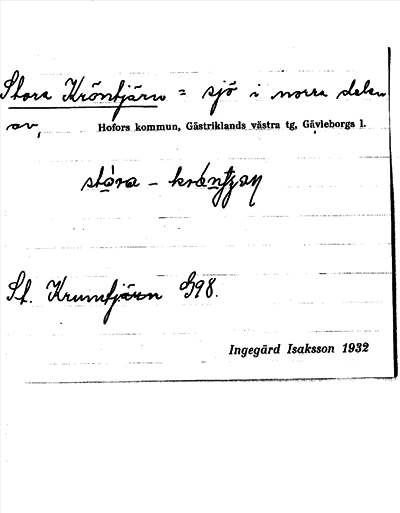 Stora Kröntjärn = sjö i norra delen
av, Hofors kommun, Gästriklands västra tg, Gävleborgs l.
St. Krumtjärn G98.
Ingegärd Isaksson 1932